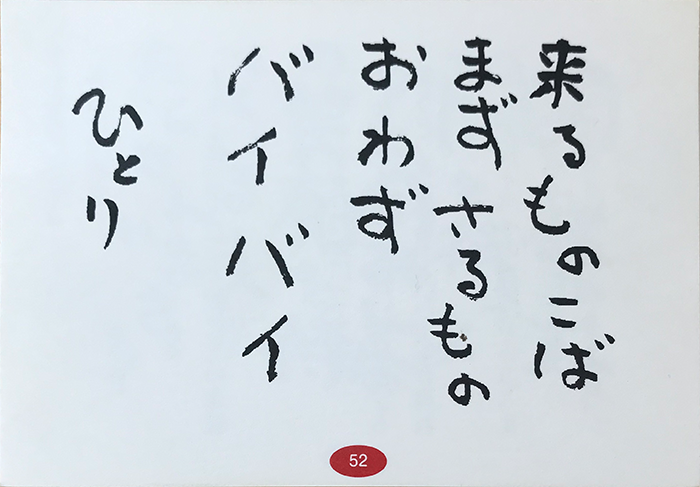 来るものこば
まず さるもの
おわず
バイバイ
ひとり
52